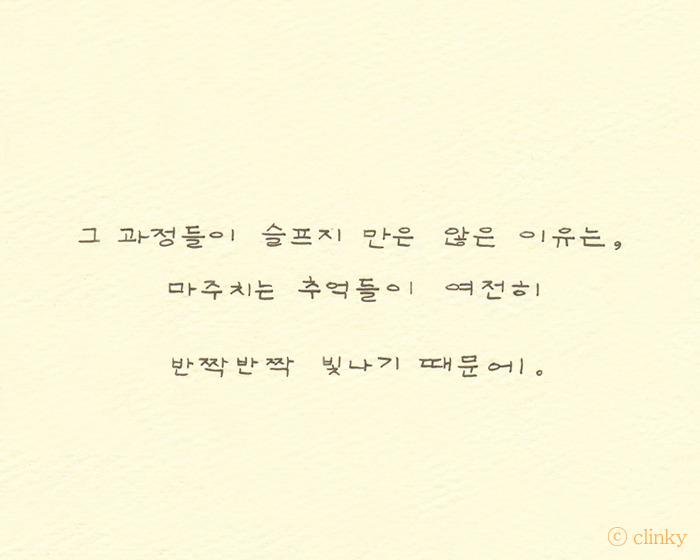 그 과정들이 슬프지 만은 않은 이유는,
마주치는 추억들이 여전히
반짝반짝 빛나기 때문에.
ⓒ clinky